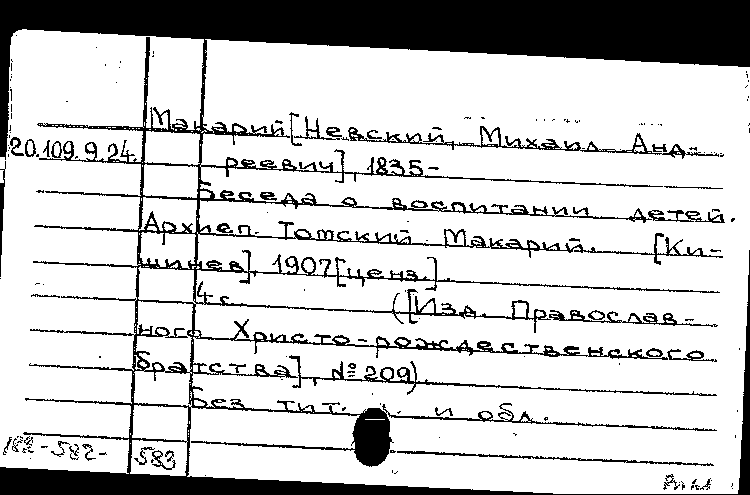 Макарий [Невский, Михаил Анд-
20.109.9.24. реевич], 1835-
Беседа о воспитании детей.
Архиеп. Томский Макарий. [Ки-
шинев], 1907 [ценз.].
4 с. ([Изд. Православ-
ного Христо-рождественского
братства], № 209).
Без тит. и обл.
182-582- 583